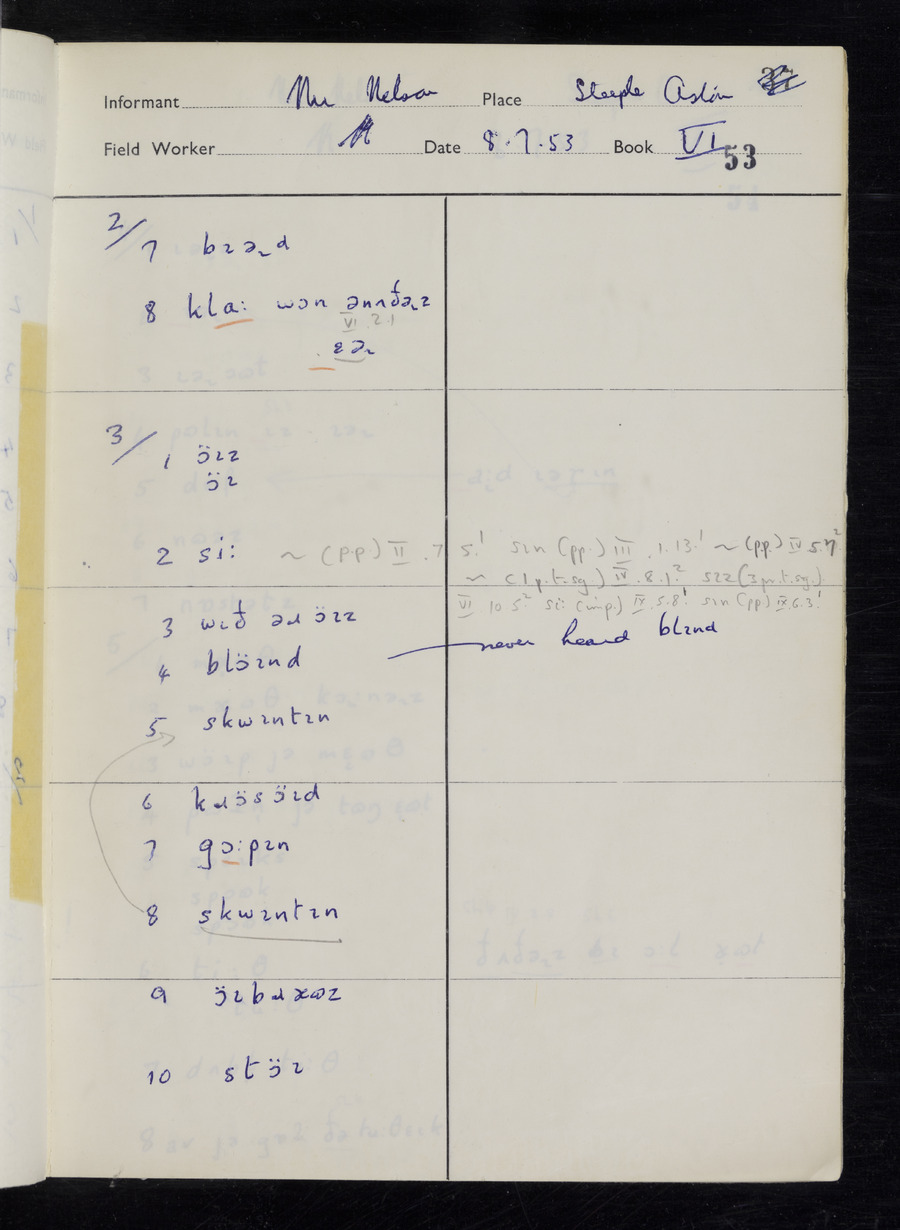 Informant Mr Nelson Place Steeple Aston
Field Worker Date 8.7.53 Book VI 53
2/
7 bɪəɹd
8 klaː wən ənʌðəɹz
VI 2.1
ɛəɹ
3/
1 öɪz
öɪ
2 siː ~ (p.p.) II .7 5.¹ sin (pp.) III .1.13.¹ ~ (pp.) IV 5.7²
~ (1 p.t.sg.) IV .8.1.² sɪz (3 pr.t.sg.)
VI 10 5² siː (imp.) IX .5.8¹ sɪn (pp) IX.6.3¹
3 wɪð əɹ öɪz
4 blöɪnd never heard blɪnd
5 skwɪntɪn
6 kɹös öɪd
7 gɔːpɪn
8 skwɪntɪn
9 öɪbɹæʊz
10 stöɪ